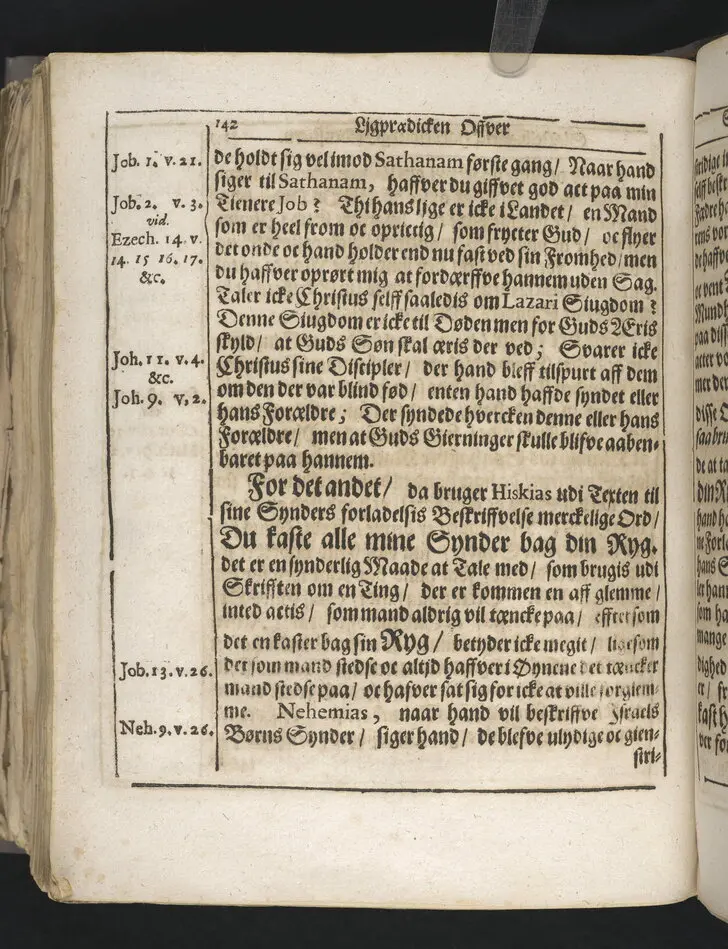 142
Ljgprædicken Offver
Job. 1. v. 21.
Job. 2. v. 3.
vid.
Ezech. 14. v.
14. 15 16. 17.
&c.
Joh. 11. v. 4.
&c.
Joh. 9. v, 2.
Job. 13. v. 26.
Neh. 9. v. 26.
de holdt sig vel imod Sathanam første gang/ Naar hand
siger til Sathanam, haffver du giffvet god act paa min
Tienere Job? Thi hans lige er icke i Landet/ en Mand
som er heel from oc oprictig/ som frycter Gud/ oc flyer
det onde oc hand holder end nu fast ved sin Fromhed/ men
du haffver oprørt mig at fordærffve hannem uden Sag.
Taler icke Christus selff saaledis om Lazari Siugdom?
Denne Siugdom er icke til Døden men for Guds Æris
skyld/ at Guds Søn skal æris der ved; Svarer icke
Christus sine Discipler/ der hand bleff tilspurt aff dem
om den der var blind fød/ enten hand haffde syndet eller
hans Forældre; Der syndede hvercken denne eller hans
Forældre/ men at Guds Gierninger skulle blifve aaben-
baret paa hannem.
For det andet/ da bruger Hiskias udi Texten til
sine Synders forladelsis Beskriffvelse merckelige Ord/
Du kaste alle mine Synder bag din Ryg.
det er en synderlig Maade at Tale med/ som brugis udi
Skrifften om en Ting/ der er kommen en aff glemme/
inted actis/ som mand aldrig vil tæncke paa/ effter som
det en kaster bag sin Ryg/ betyder icke megit/ ligesom
det som mand stedse oc altjd haffver i Øynene det tæncker
mand stedse paa/ oc hafver sat sig for icke at ville forglem-
me. Nehemias, naar hand vil beskriffve Jsraels
Børns Synder/ siger hand/ de blefve ulydige oc gien-
stri-